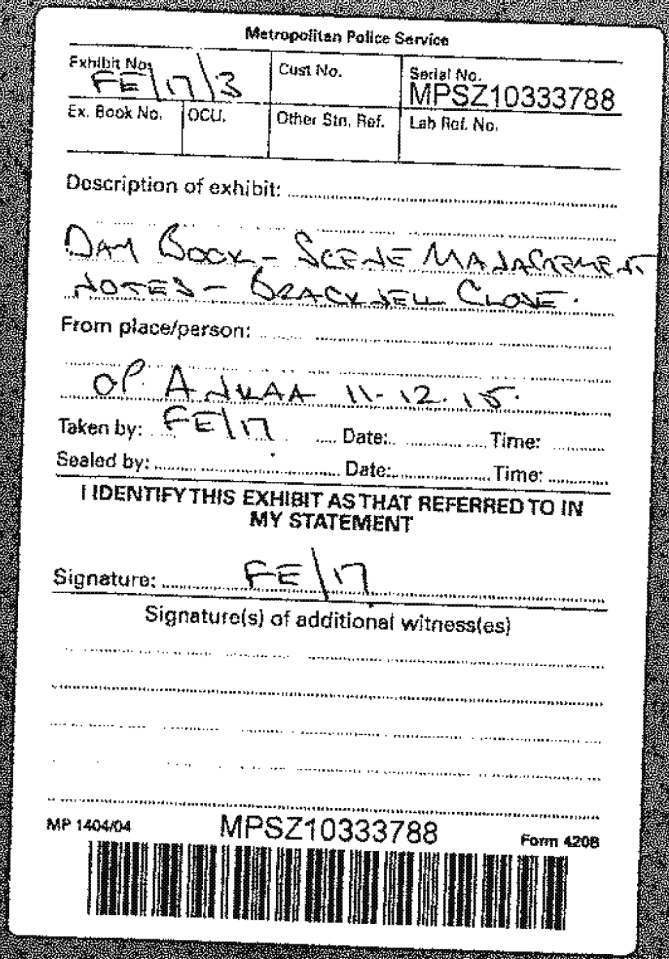 Metropolitan Police Service
Exhibit No: FE/17/3 Cust No. Serial No. MPSZ10333788
Ex. Book No. OCU. Other Stn. Ref. Lab Ref. No.
Description of exhibit:
DAY BOOK - SCENE MANAGEMENT
NOTES - BRACKNELL CLOSE.
From place/person:
OP. ANKAA 11-12.15.
Taken by: FE/17 Date: Time:
Sealed by: Date: Time:
I IDENTIFY THIS EXHIBIT AS THAT REFERRED TO IN
MY STATEMENT
Signature: FE/17
Signature(s) of additional witness(es)
MP 1404/04 MPSZ10333788 Form 420B